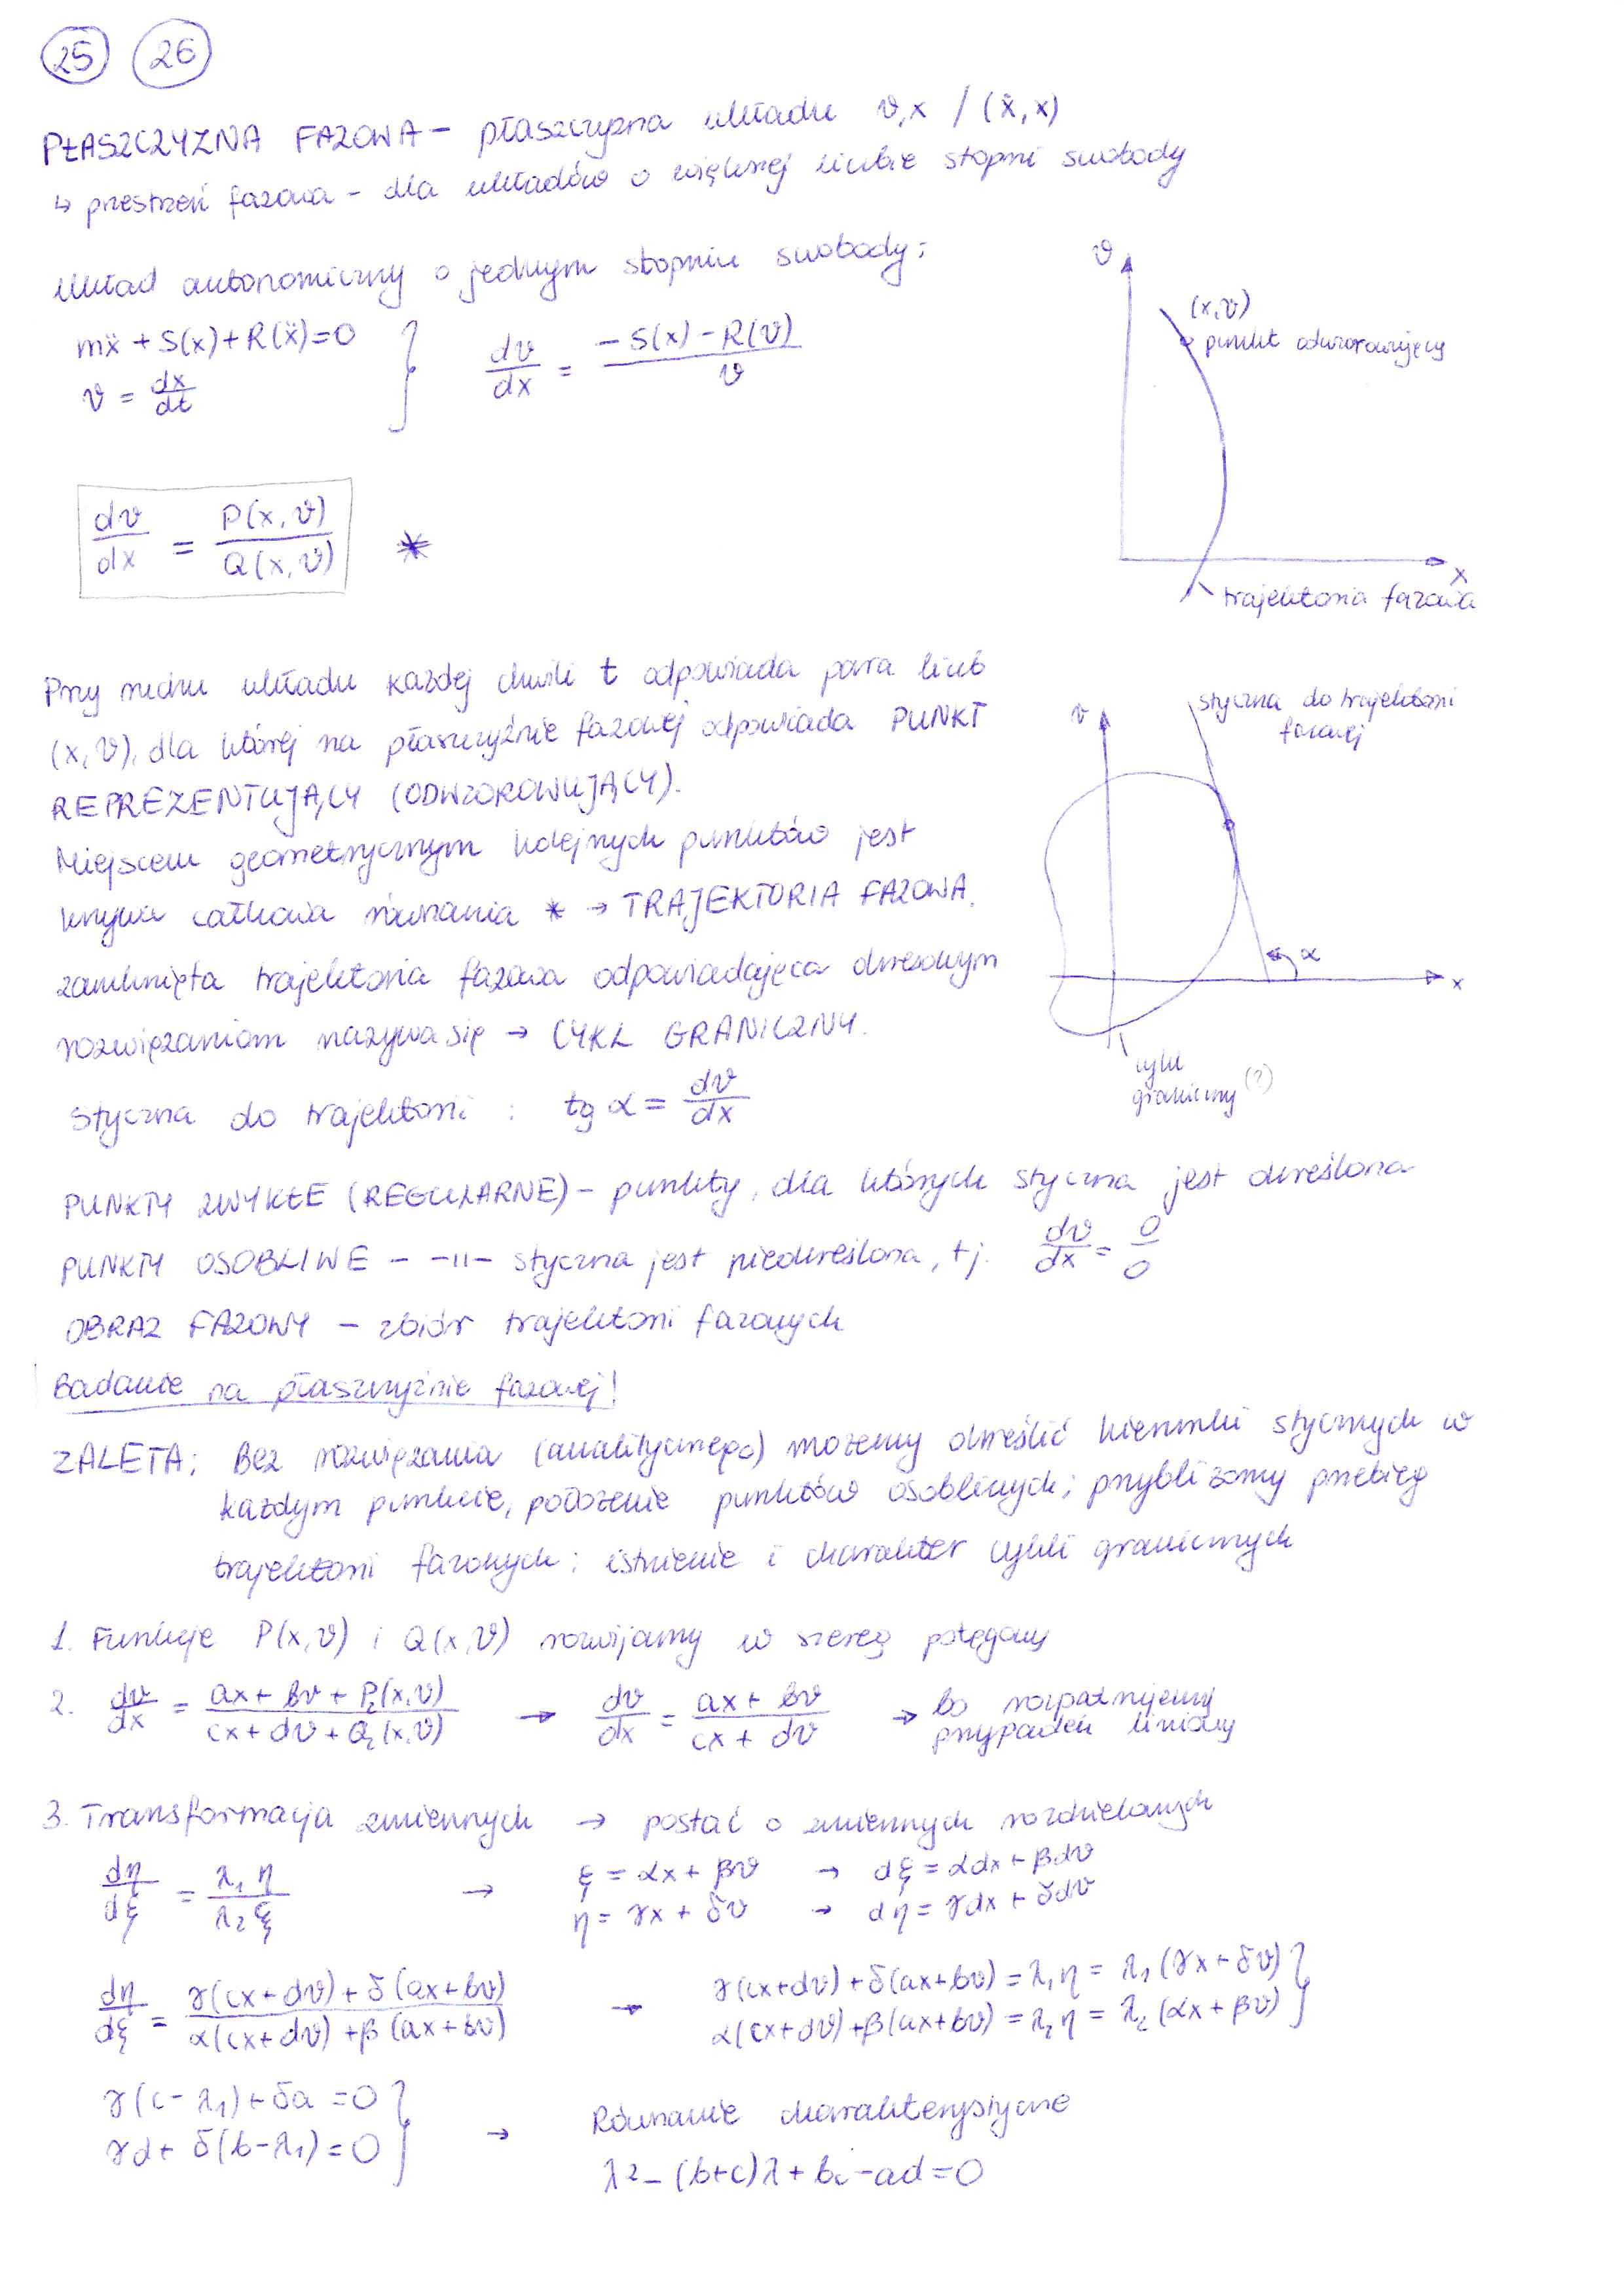 25 26
PŁASZCZYZNA FAZOWA – płaszczyzna układu v,x / (ẋ,x)
↳ przestrzeń fazowa – dla układów o większej liczbie stopni swobody
Układ autonomiczny o jednym stopniu swobody:
mẍ + S(x) + R(ẍ) = 0
v = dx/dt
} dv/dx = (–S(x) – R(v))/v
v
(x,v)
punkt odwzorowujący
x
trajektoria fazowa
dv/dx = P(x,v)/Q(x,v) *
Przy ruchu układu każdej chwili t odpowiada para liczb
(x,v), dla której na płaszczyźnie fazowej odpowiada PUNKT
REPREZENTUJĄCY (ODWZOROWUJĄCY).
Miejscem geometrycznym kolejnych punktów jest
krzywa całkowa równania * → TRAJEKTORIA FAZOWA.
zamknięta trajektoria fazowa odpowiadająca okresowym
rozwiązaniom nazywa się → CYKL GRANICZNY.
styczna do trajektorii : tg α = dv/dx
v
styczna do trajektorii
fazowej
α
x
cykl
graniczny (?)
PUNKTY ZWYKŁE (REGULARNE) – punkty, dla których styczna jest określona
PUNKTY OSOBLIWE – –||– styczna jest nieokreślona, tj. dv/dx = 0/0
OBRAZ FAZOWY – zbiór trajektorii fazowych
Badanie na płaszczyźnie fazowej!
ZALETA: Bez rozwiązania (analitycznego) możemy określić kierunki stycznych w
każdym punkcie, położenie punktów osobliwych; przybliżony przebieg
trajektorii fazowych; istnienie i charakter cykli granicznych
1. Funkcje P(x,v) i Q(x,v) rozwijamy w szereg potęgowy
2. dv/dx = (ax + bv + P₂(x,v))/(cx + dv + Q₂(x,v)) → dv/dx = (ax + bv)/(cx + dv) → bo rozpatrujemy
przypadek liniowy
3. Transformacja zmiennych → postać o zmiennych rozdzielanych
dη/dξ = λ₁η/λ₂ξ → ξ = αx + βv → dξ = αdx + βdv
η = γx + δv → dη = γdx + δdv
dη/dξ = (γ(cx+dv) + δ(ax+bv))/(α(cx+dv) + β(ax+bv)) → γ(cx+dv) + δ(ax+bv) = λ₁η = λ₁(γx + δv)
α(cx+dv) + β(ax+bv) = λ₂η = λ₂(αx + βv) }
γ(c – λ₁) + δa = 0
γd + δ(b – λ₁) = 0 } → Równanie charakterystyczne
λ² – (b+c)λ + bc – ad = 0